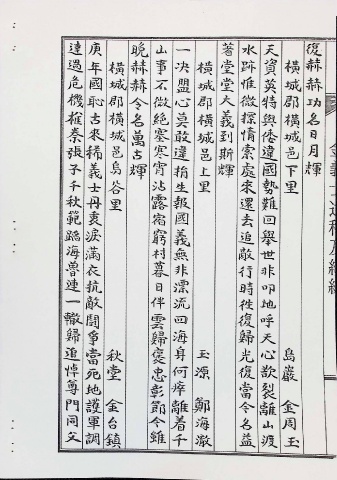 復赫赫功名日月輝
橫城郡橫城邑下里 烏巖 金周玉
天資英特與倭違國勢難回舉世非叩地呼天心欲裂離山渡
水跡惟微探情索處來還去追敵行時徃復歸光復當今名益
著堂堂大義到斯輝
橫城郡橫城邑上里 玉源 鄭海澈
一决盟心莫敢違捐生報國義無非漂流四海身何瘁離着千
山事不微絶寒寒宵沾露宿窮村暮日伴雲歸褒忠彰節今雖
晚赫赫令名萬古輝
橫城郡橫城邑烏谷里 秋堂 金台鎮
庚年國恥古來稀義士丹衷淚滿衣抗敵鬪爭當死地護軍調
達過危機椎秦張子千秋範蹈海魯連一轍歸追悼尊門同文